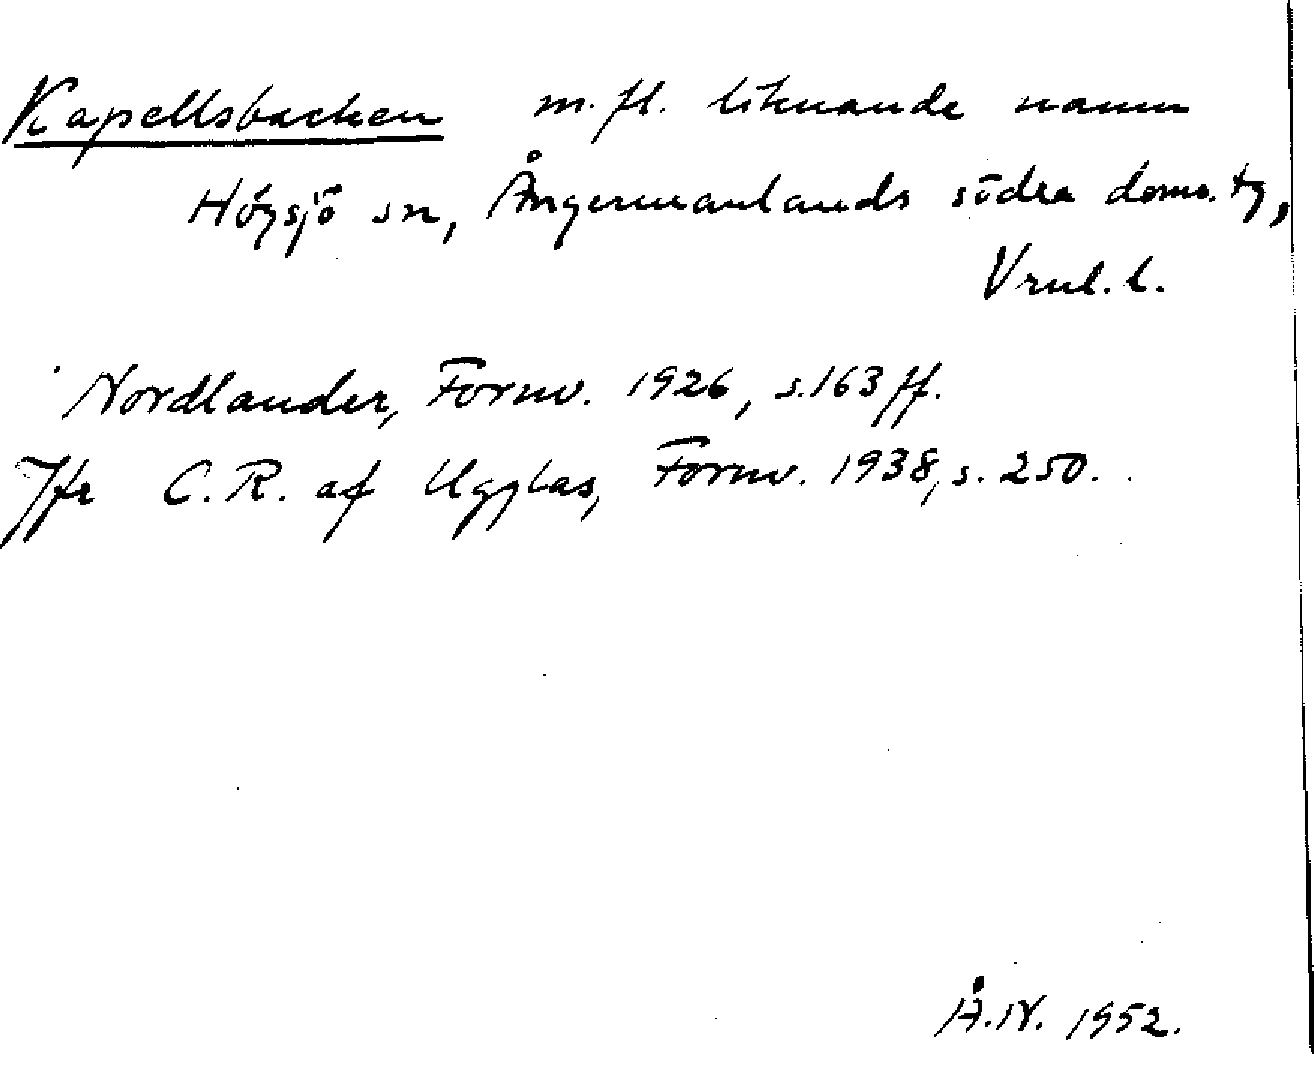 Kapellsbacken m. fl. liknande namn
Högsjö sn, Ångermanlands södra doms. tg,
Vrnl. l.
Nordlander, Fornv. 1926, s. 163 ff.
Jfr C. R. af Ugglas, Fornv. 1938, s. 250.
Å. N. 1952.